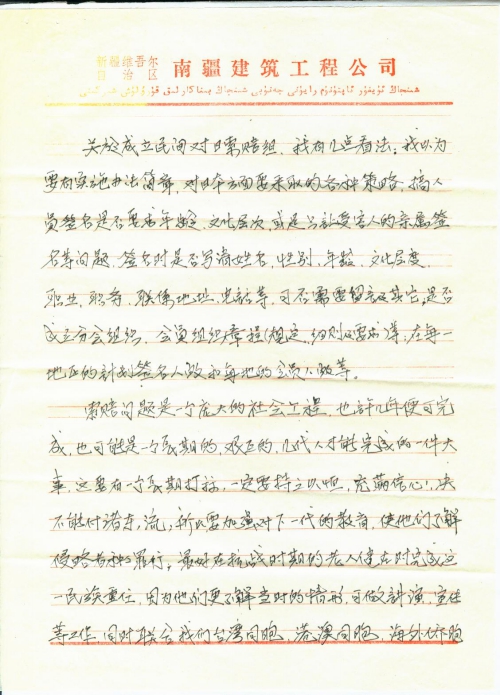 新疆维吾尔
自治区
南疆建筑工程公司
关於成立民间对日索赔组，我有几点看法：我以为
要有实施办法简章，对日本方面要采取的各种策略，搞人
员签名是否要求年龄、文化层次，或是只让受害人的亲属签
名等问题，签名时是否写清姓名，性别，年龄，文化层度，
职业，职务，联係地址，电话等，可否需要留言及其它，是否
成立分会组织，会员组织章程(规定，细则及要求)等，在每一
地区的计划签名人数和每地的会员人数等。
索赔问题是一个庞大的社会工程，也许几年便可完
成，也可能是一个长期的，艰巨的，几代人才能完成的一件大
事，这要有一个长期打标，一定要持之以恒，充满信心！决
不能付诸东流，所以要加强对下一代的教育，使他们了解
侵略者种罪行。最好在抗战时期的老人健在时完成这
一民族重任，因为他们更了解当时的情形，可做讲演，宣传
等工作，同时联合我们台湾同胞，港澳同胞，海外侨胞